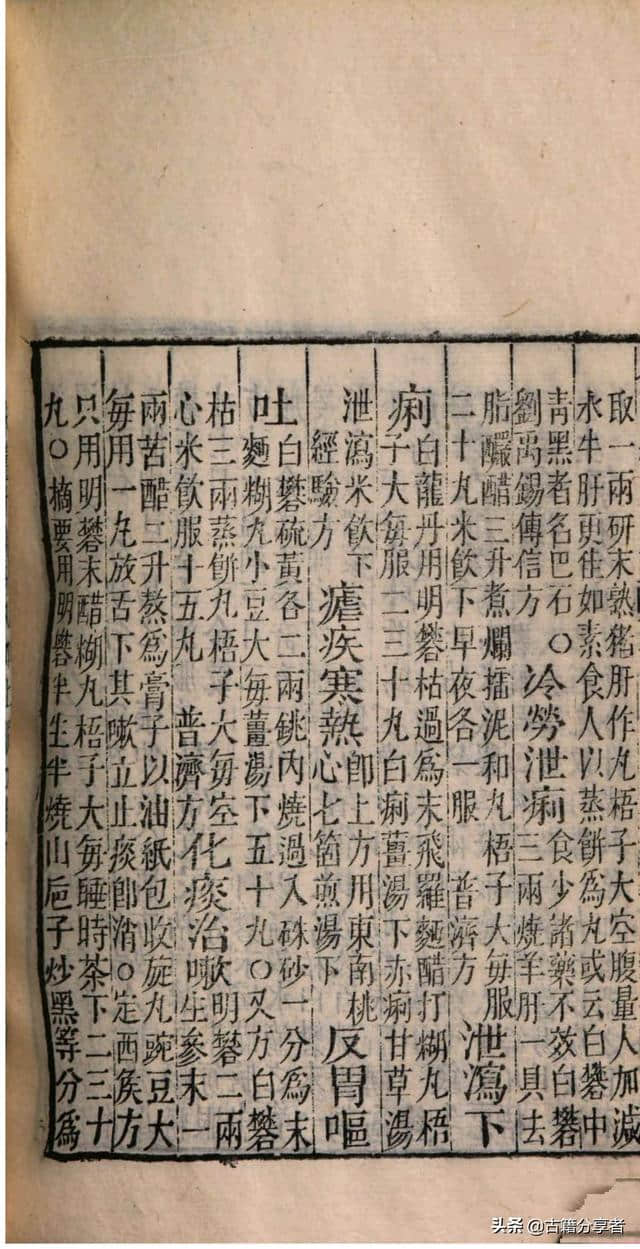 取一兩研末熟猪肝作丸梧子大空腹量人加減
水牛肝更佳如素食人以蒸餅為丸或云白礬中
青黑者名巴石〇
劉禹錫傳信方
冷勞泄痢
食少諸藥不效白礬
三兩燒羊肝一具去
脂釅醋三升煮爛擂泥和丸梧子大每服
二十丸米飲下早夜各一服 普濟方
泄瀉下
痢
白龍丹用明礬枯過為末飛羅麵醋打糊丸梧
子大每服二三十丸白痢薑湯下赤痢甘草湯
泄瀉米飲下
經驗方
瘧疾寒熱
即上方用東南桃
心七箇煎湯下
反胃嘔
吐
白礬硫黃各二兩銚內燒過入硃砂一分為末
麵糊丸小豆大每薑湯下五十丸〇又方白礬
枯三兩蒸餅丸梧子大每空
心米飲服十五丸 普濟方
化痰治嗽
明礬二兩
生參末一
兩苦醋二升熬為膏子以油紙包收旋丸豌豆大
每用一丸放舌下其嗽立止痰即消〇定西侯方
只用明礬末醋糊丸梧子大每睡時茶下二三十
丸〇摘要用明礬半生半燒山巵子炒黑等分為
头条 @古籍分享者